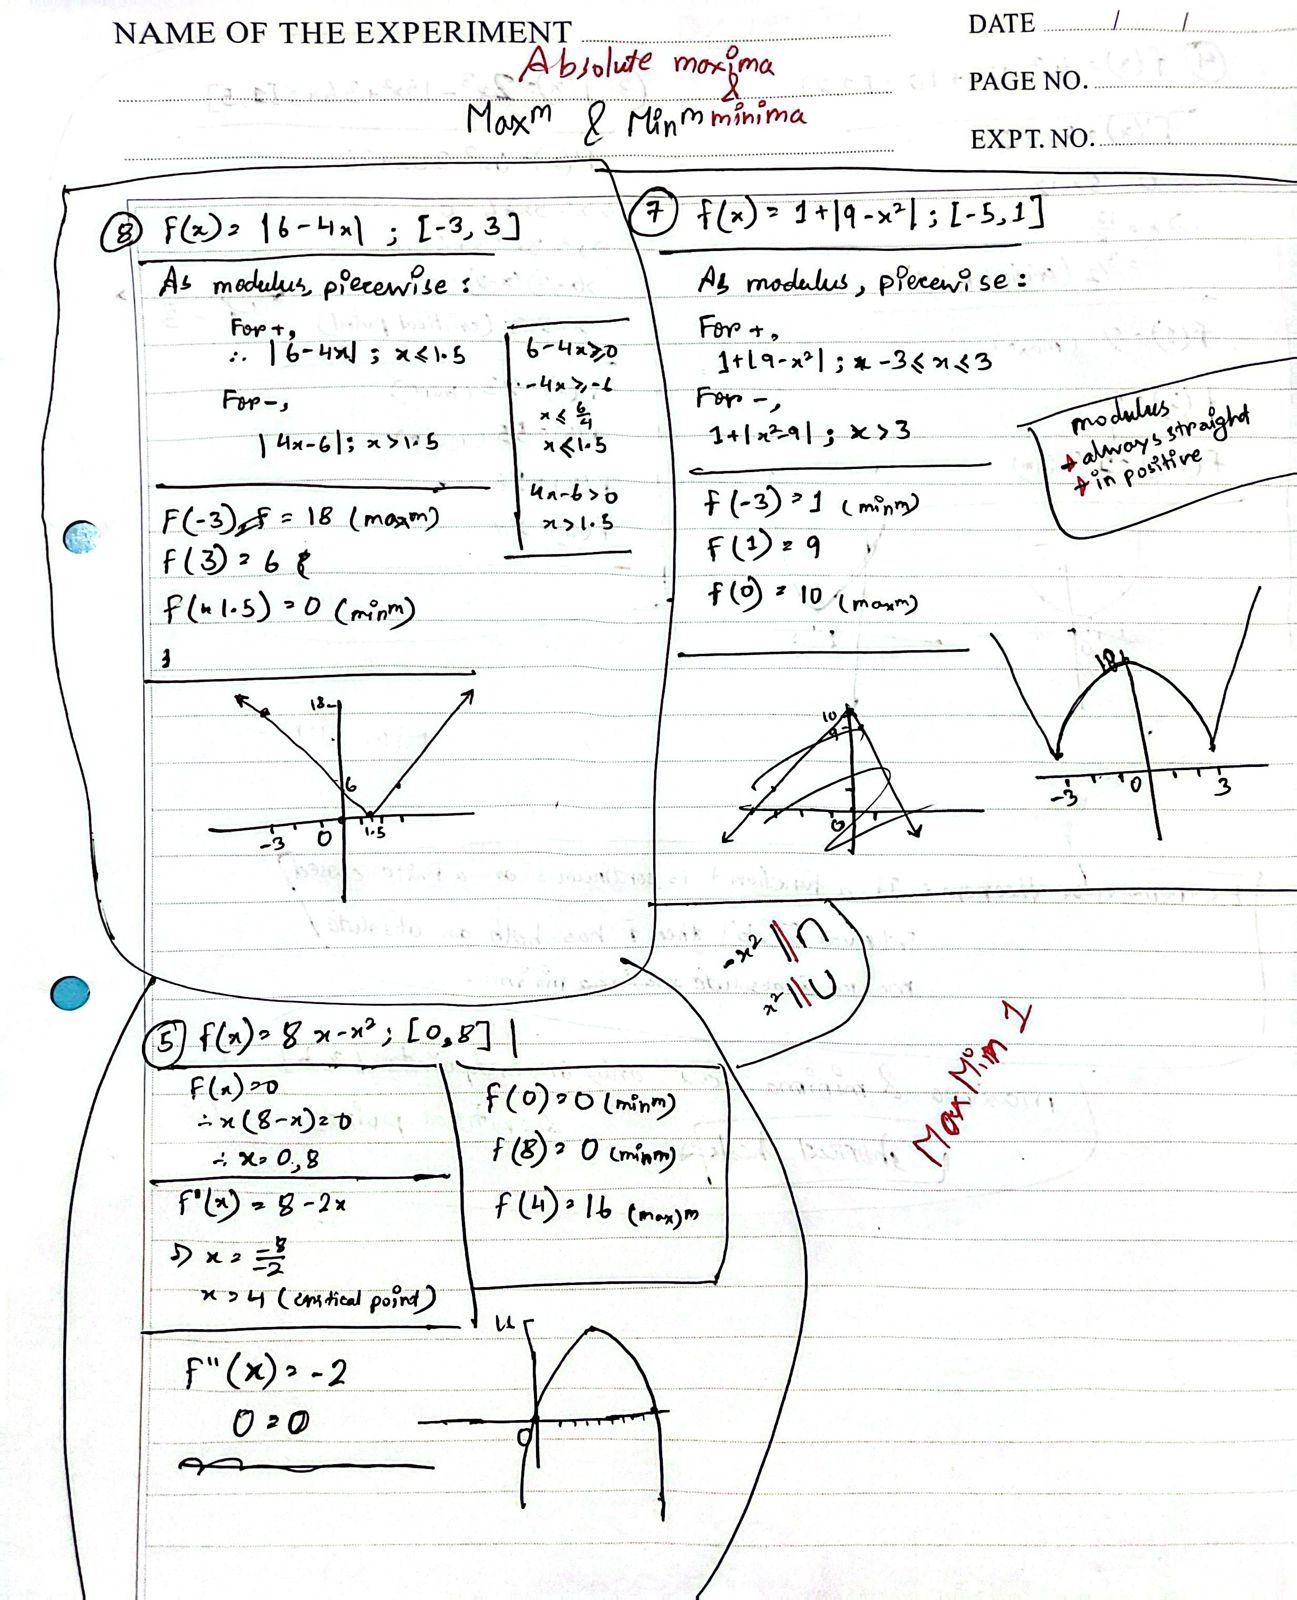 NAME OF THE EXPERIMENT
DATE / /
PAGE NO.
EXPT. NO.
Absolute maxima
&
minima
Maxᵐ & Minᵐ
⑧ f(x) = |6-4x| ; [-3, 3]
As modulus, piecewise :
For +,
∴ |6-4x| ; x ≤ 1.5
For -,
|4x-6| ; x > 1.5
6-4x ≥ 0
-4x ≥ -6
x ≤ 6/4
x ≤ 1.5
4x-6 > 0
x > 1.5
f(-3) = 18 (maxᵐ)
f(3) = 6
f(1.5) = 0 (minᵐ)
18
6
-3 0 1.5
⑦ f(x) = 1+|9-x²| ; [-5, 1]
As modulus, piecewise :
For +,
1+|9-x²| ; -3 ≤ x ≤ 3
For -,
1+|x²-9| ; x > 3
modulus
→ always straight
→ in positive
f(-3) = 1 (minᵐ)
f(1) = 9
f(0) = 10 (maxᵐ)
10
9
0
10
-3 0 3
-x² // ∩
x² // U
Max Min 1
⑤ f(x) = 8x-x² ; [0, 8]
f(x) = 0
∴ x(8-x) = 0
∴ x = 0, 8
f'(x) = 8-2x
⇒ x = -8/-2
x = 4 (critical point)
f(0) = 0 (minᵐ)
f(8) = 0 (minᵐ)
f(4) = 16 (max)ᵐ
f"(x) = -2
0 = 0
0